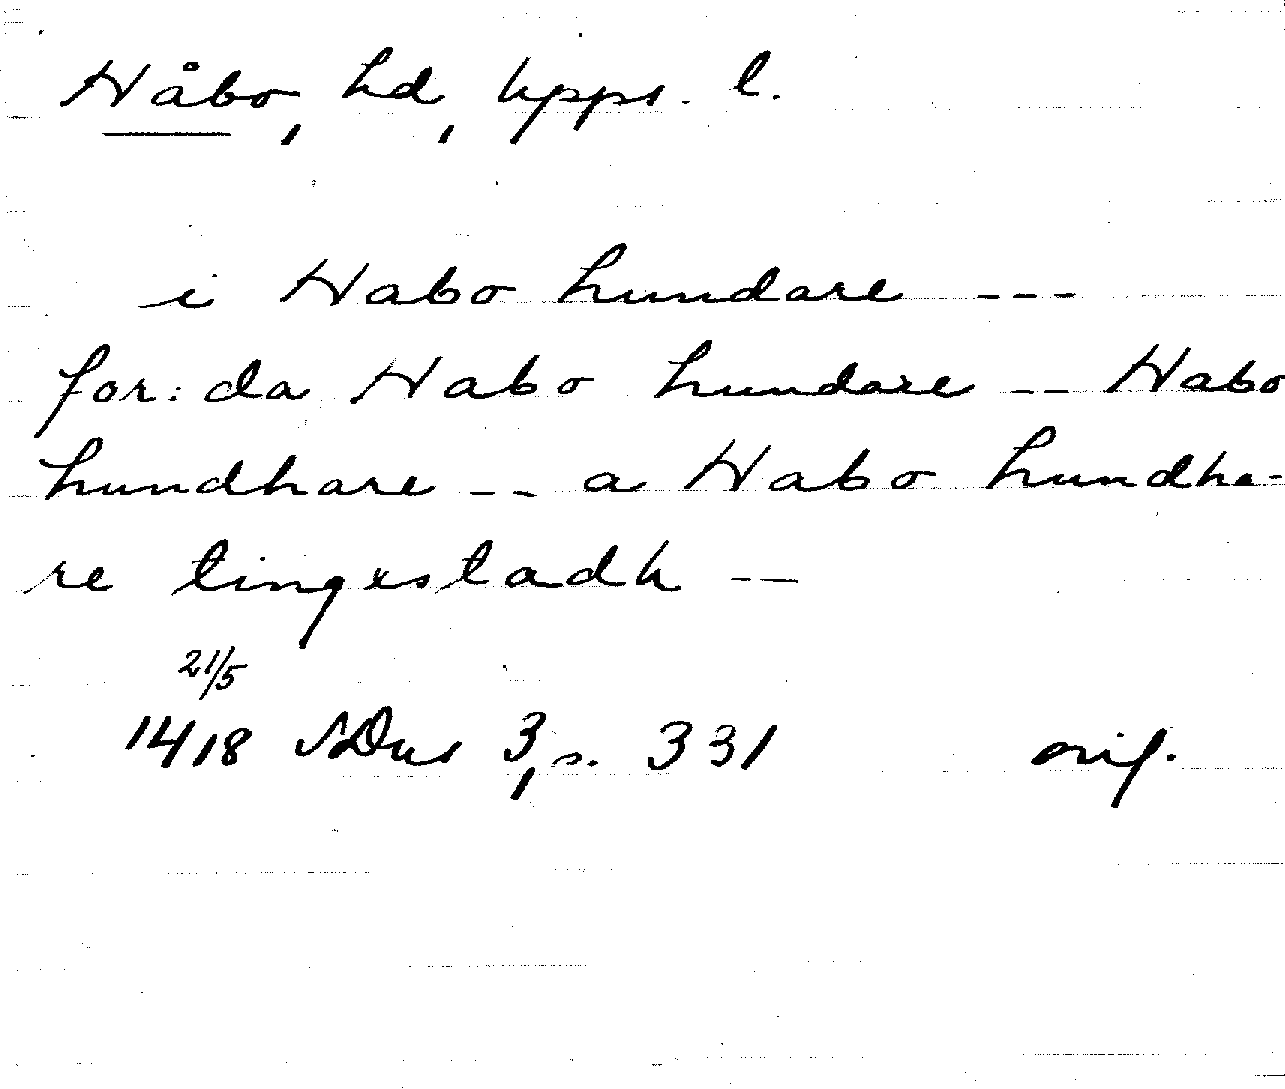 Håbo, hd, Upps. l.
i Habo hundare ---
for: da Habo hundare -- Habo
hundhare -- a Habo hundha-
re tingxstadh --
21/5
1418 SDns 3, s. 331 orig.